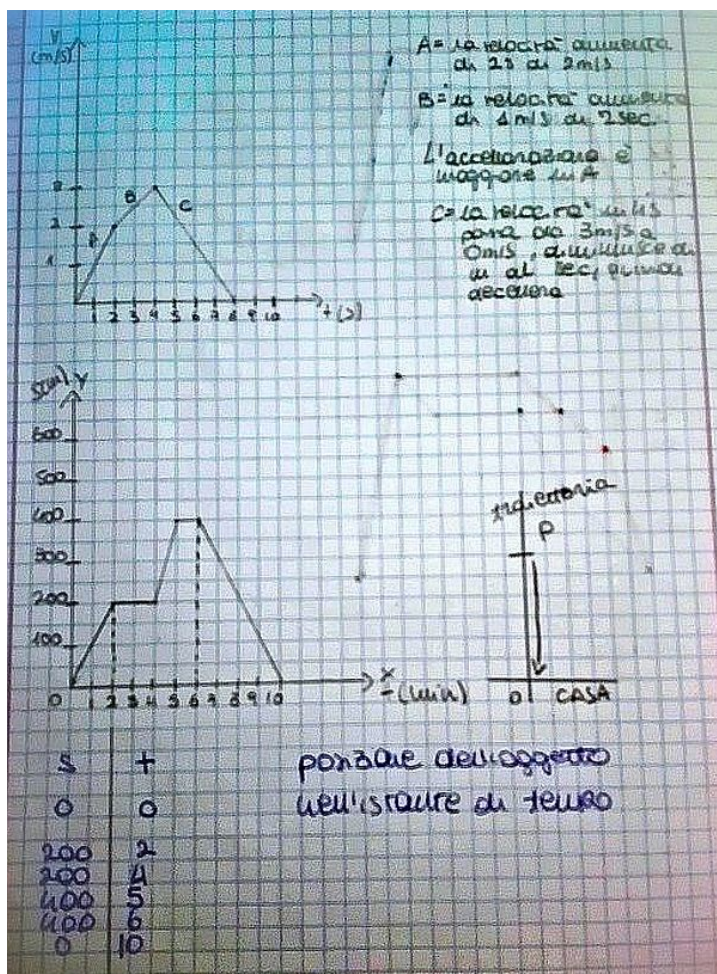 V
(m/s)
3
2
1
A
B
C
1 2 3 4 5 6 7 8 9 10
t (s)
A = la velocità aumenta
di 2s di 2m/s
B = la velocità aumenta
di 1 m/s di 2 sec.
L'accellerazione è
maggiore in A
C = la velocità in 4s
passa da 3m/s a
0m/s, diminuisce di
al sec, quindi
decellera
S(m) Y
600
500
400
300
200
100
0 1 2 3 4 5 6 7 8 9 10
X
t (min)
traiettoria
P
0 CASA
S t
0 0
200 2
200 4
400 5
400 6
0 10
posizione dell'oggetto
nell'istante di tempo